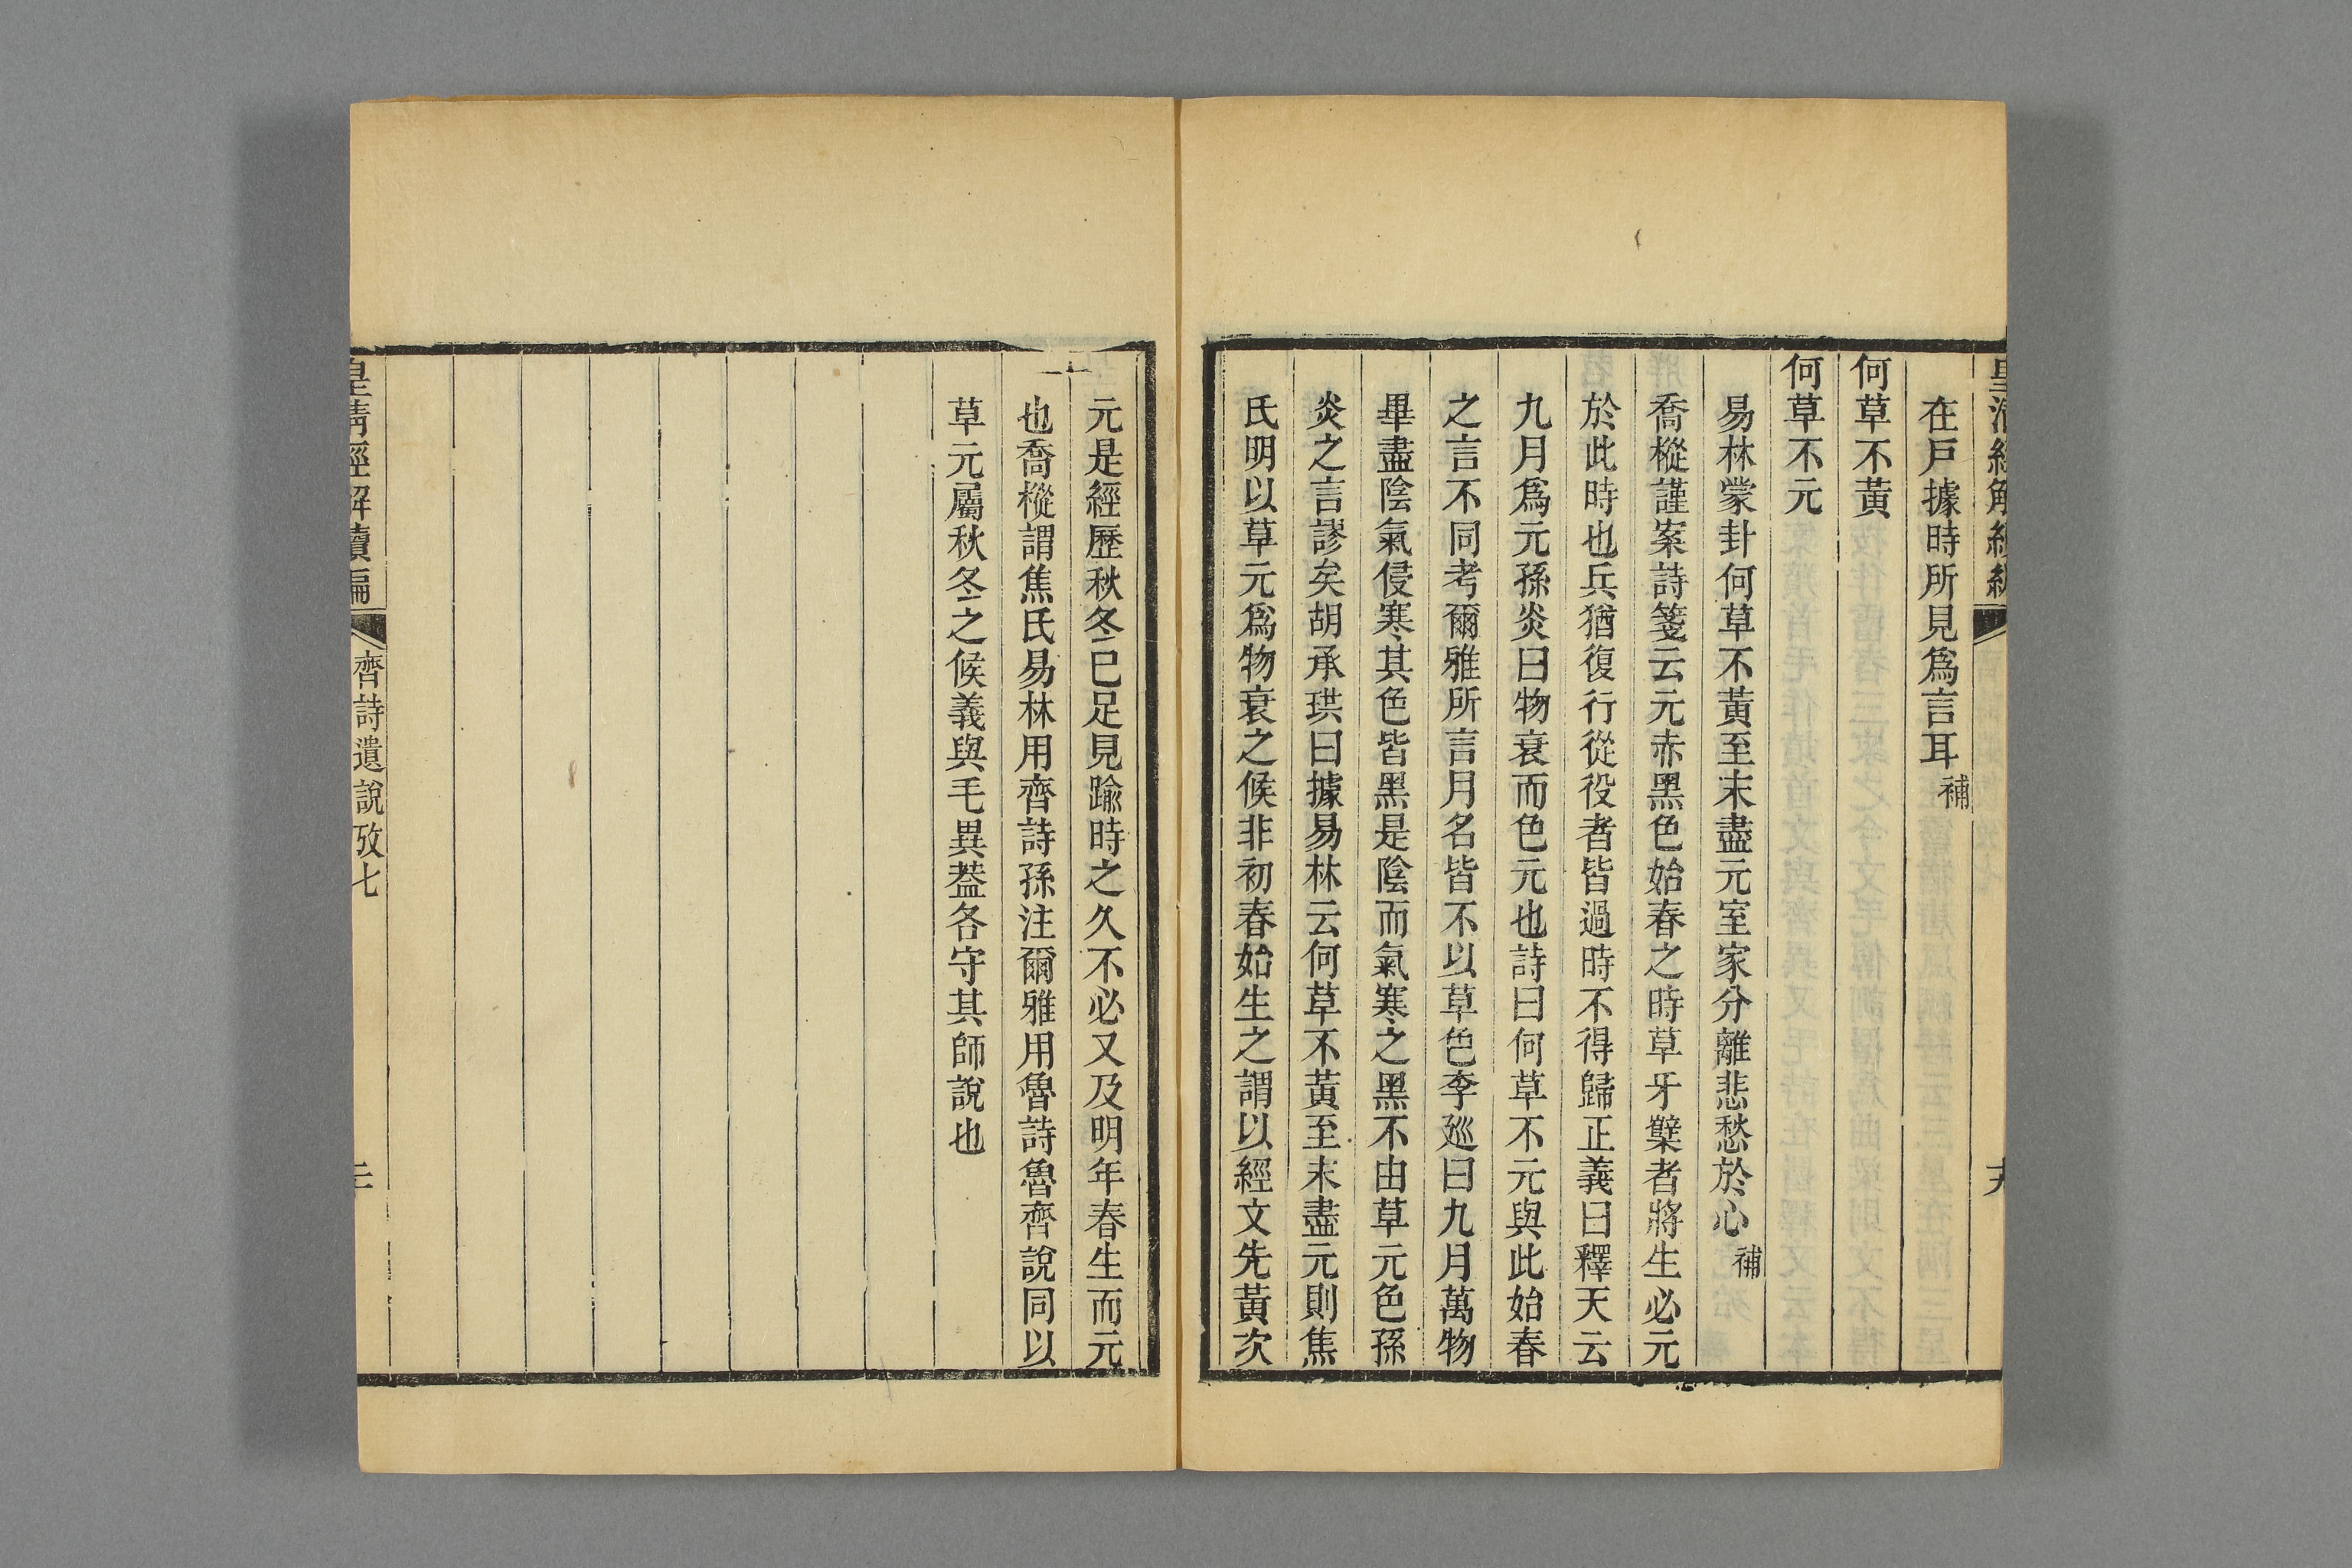 在戶據時所見爲言耳補
何草不黃
何草不元
易林蒙卦何草不黃至末盡元室家分離悲愁於心補
喬樅謹案詩箋云元赤黑色始春之時草牙櫱者將生必元
於此時也兵猶復行從役者皆過時不得歸正義曰釋天云
九月爲元孫炎曰物衰而色元也詩曰何草不元與此始春
之言不同考爾雅所言月名皆不以草色李廵曰九月萬物
畢盡陰氣侵寒其色皆黑是陰而氣寒之黑不由草元色孫
炎之言謬矣胡承珙曰據易林云何草不黃至末盡元則焦
氏明以草元爲物衰之候非初春始生之謂以經文先黃次
元是經歷秋冬已足見踰時之久不必又及明年春生而元
也喬樅謂焦氏易林用齊詩孫注爾雅用魯詩魯齊說同以
草元屬秋冬之候義與毛異葢各守其師說也
皇清經解續編
齊詩遺說攷七